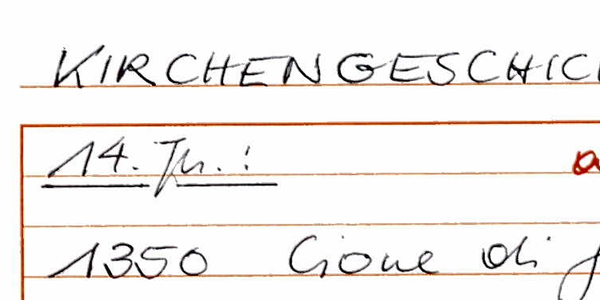 KIRCHENGESCHIC
14. Jh.:
1350 Cione di